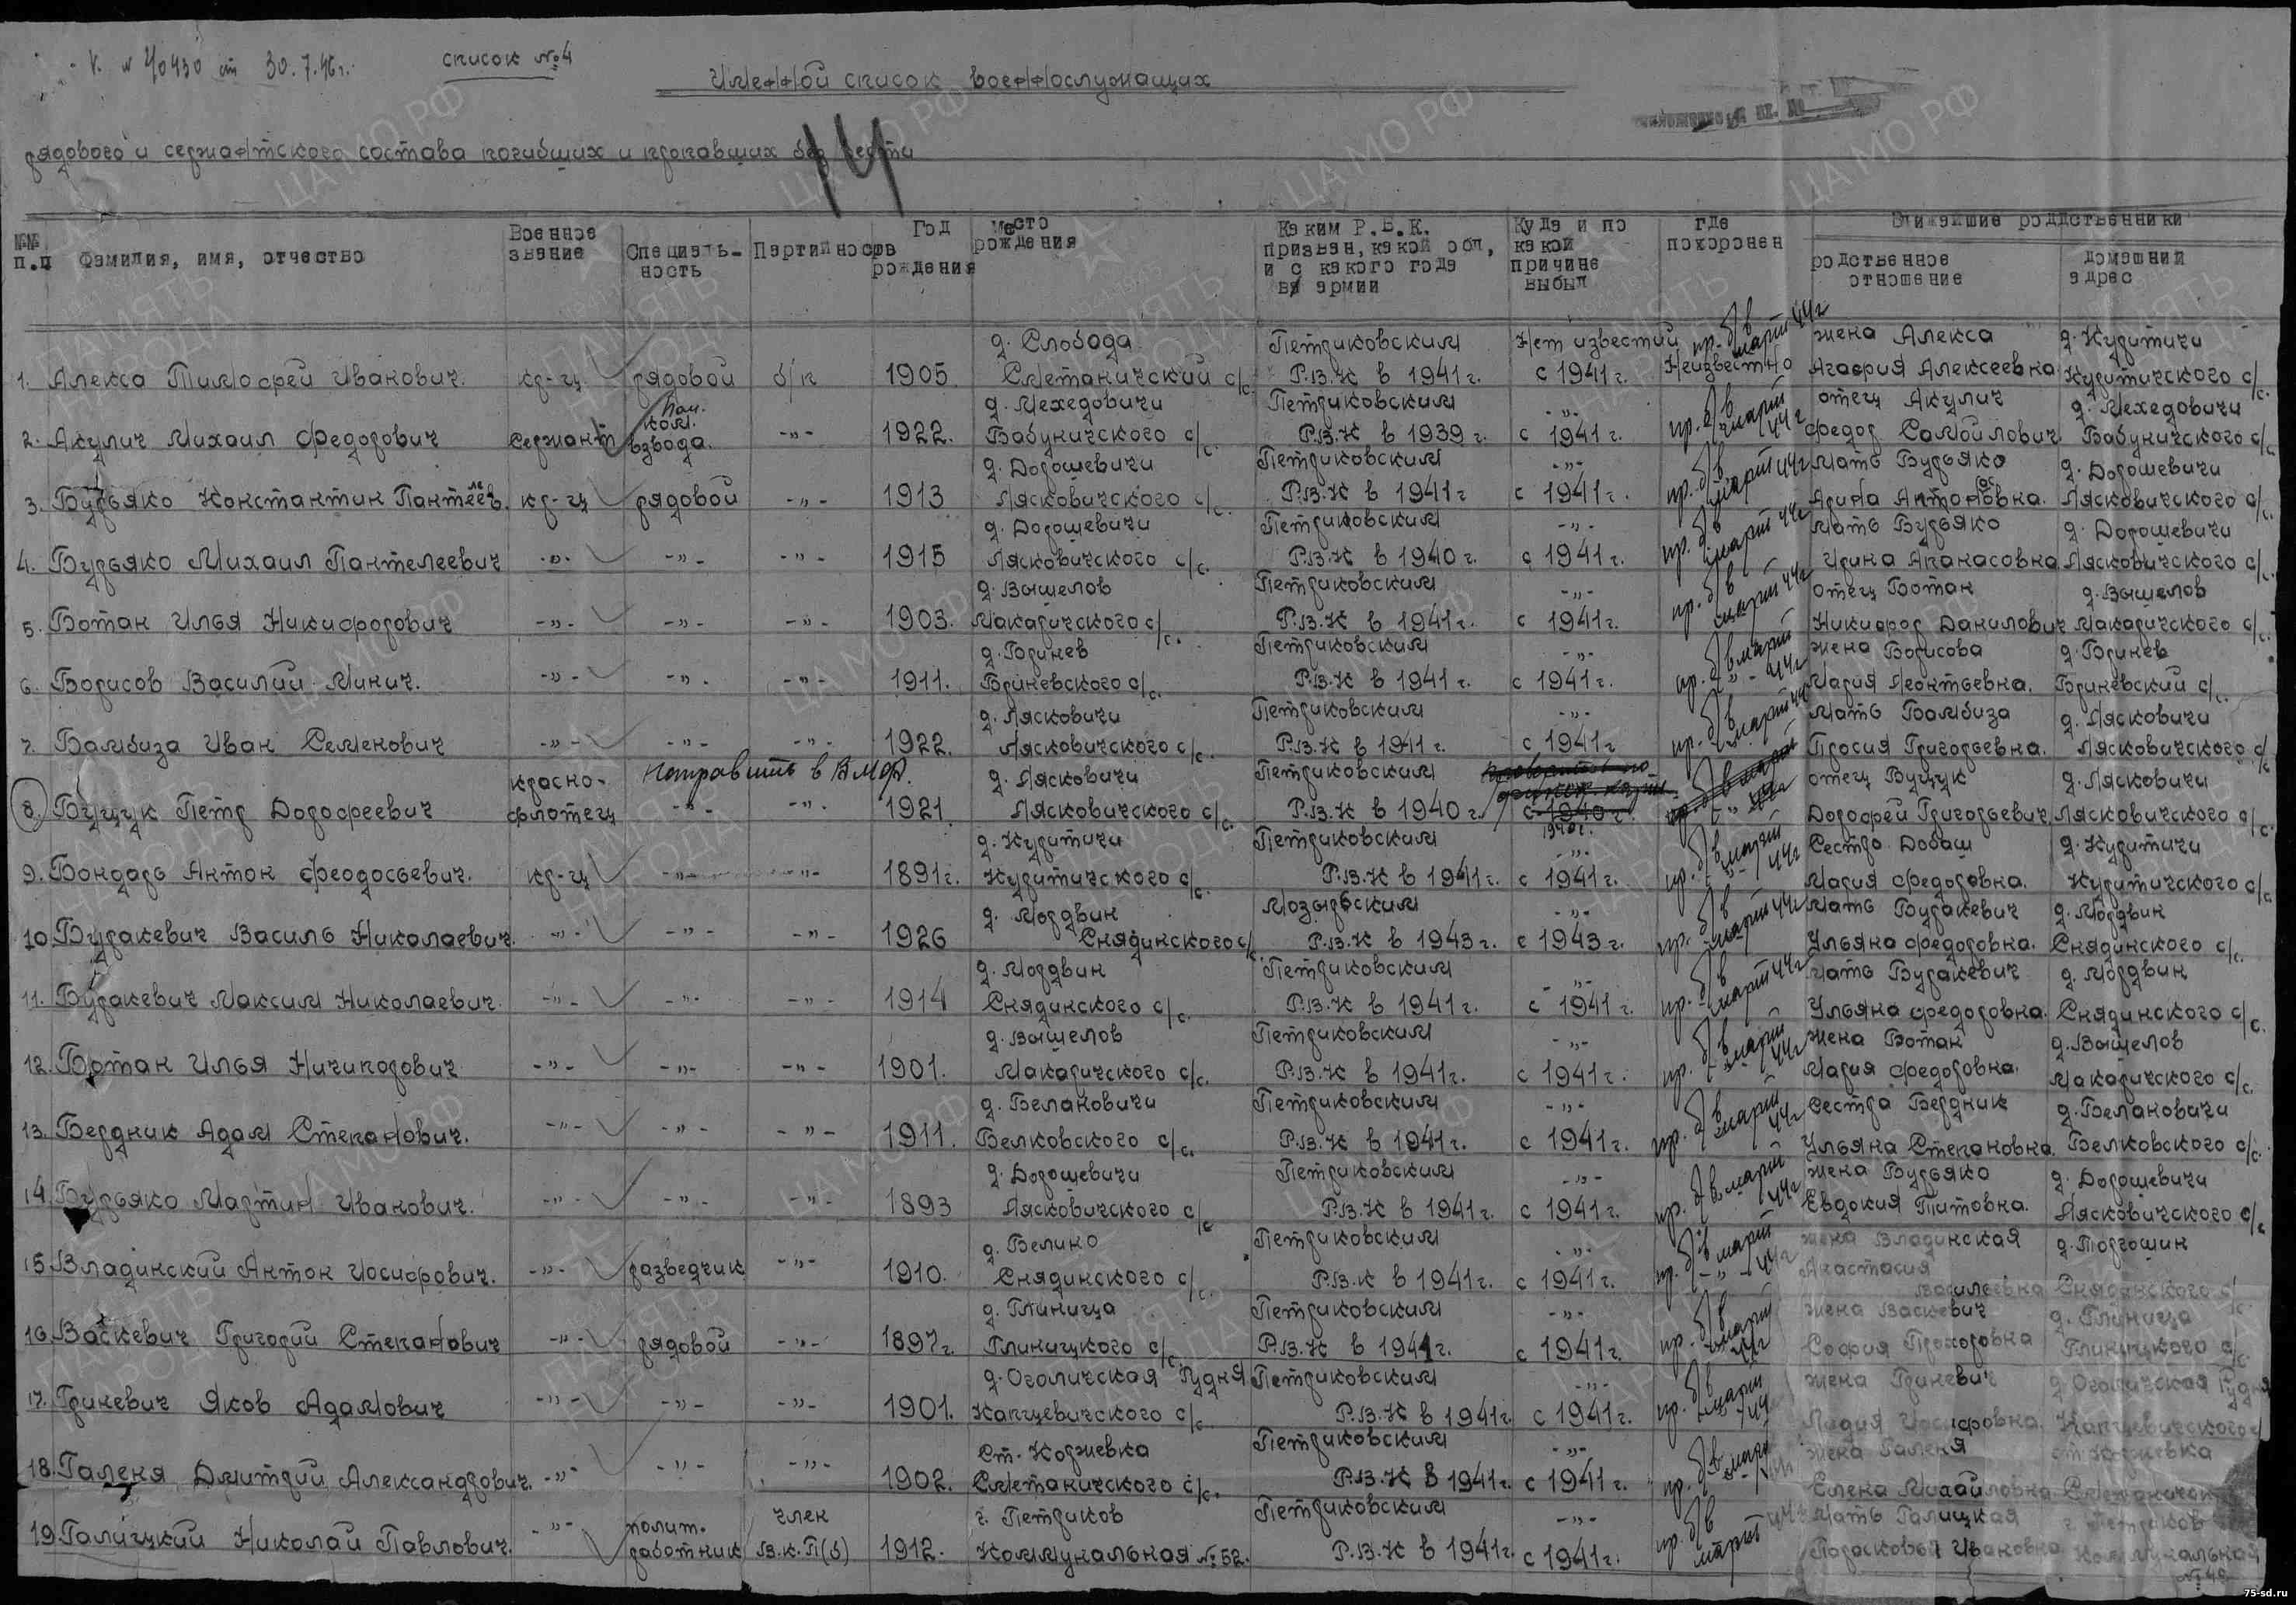 V. N 40430 от 30.7.46 г.
список №4
Именной список военнослужащих
рядового и сержантского состава погибших и пропавших без вести
14
№№ п.п | Фамилия, имя, отчество | Военное звание | Специальность | Партийность | Год рождения | Место рождения | Каким Р.В.К. призван, какой обл, и с какого года в армии | Куда и по какой причине выбыл | где похоронен | Ближайшие родственники: родственное отношение | домашний адрес
1. Алекса Тимофей Иванович. | кр-ец | рядовой | б/п | 1905. | д. Слобода Сметаничский с/с. | Петриковским Р.В.К в 1941 г. | Нет известий с 1941 г. | Неизвестно пр. б/в март 44 г | жена Алекса Агафия Алексеевна | д. Куритичи Куритичского с/с.
2. Акулич Михаил Федорович | Сержант | пом. ком. взвода. | -"- | 1922. | д. Мехедовичи Бабуничского с/с. | Петриковским Р.В.К в 1939 г. | -"- с 1941 г. | пр. б/в март 44 г | отец Акулич Федор Самойлович. | д. Мехедовичи Бабуничского с/с.
3. Бурьяко Константин Пантелеев. | кр-ец | рядовой | -"- | 1913 | д. Дорошевичи Лясковичского с/с. | Петриковским Р.В.К в 1941 г | -"- с 1941 г. | пр. б/в март 44 г | Мать Бурьяко | д. Дорошевичи Лясковичского с/с.
4. Бурьяко Михаил Пантелеевич | -"- | -"- | -"- | 1915 | д. Дорошевичи Лясковичского с/с. | Петриковским Р.В.К в 1940 г. | -"- с 1941 г. | пр. б/в март 44 г | Мать Бурьяко Ирина Апанасовна | д. Дорошевичи Лясковичского с/с.
5. Ботан Илья Никифорович | -"- | -"- | -"- | 1903. | д. Вышелов Макаричского с/с. | Петриковским Р.В.К в 1941 г. | -"- с 1941 г. | пр. б/в март 44 г | отец Ботан Никифор Данилович | д. Вышелов Макаричского с/с.
6. Борисов Василий Минич. | -"- | -"- | -"- | 1911. | д. Бринев Бриневского с/с. | Петриковским Р.В.К в 1941 г. | -"- с 1941 г. | пр. б/в март -"- 44 г | жена Борисова Мария Леонтьевна. | д. Бринев Бриневский с/с.
7. Бамбиза Иван Семенович | -"- | -"- | -"- | 1922. | д. Лясковичи Лясковичского с/с. | Петриковским Р.В.К в 1941 г. | -"- с 1941 г | пр. б/в март 44 | Мать Бамбиза Просия Григорьевна. | д. Лясковичи Лясковичского с/с
8. Бущук Петр Дорофеевич | красно-флотец | Направить в ВМФ. -"- | -"- | 1921. | д. Лясковичи Лясковичского с/с. | Петриковским Р.В.К в 1940 г. | с 1940 г. 1940 г. | пр. б/в март | отец Бущук Дорофей Григорьевич. | д. Лясковичи Лясковичского с/с.
9. Бондарь Антон Феодосьевич. | кр-ец | -"- | -"- | 1891 г. | д. Куритичи Куритичского с/с. | Петриковским Р.В.К в 1941 г. | -"- с 1941 г. | пр. б/в март -"- 44 г | Сестра Добаш Мария Федоровна. | д. Куритичи Куритичского с/с.
10. Буракевич Василь Николаевич. | -"- | -"- | -"- | 1926 | д. Мордвин Снядинского с/с. | Мозырьским Р.В.К в 1943 г. | -"- с 1943 г. | пр. б/в март 44 г | Мать Буракевич Ульяна Федоровна. | д. Мордвин Снядинского с/с.
11. Буракевич Максим Николаевич. | -"- | -"- | -"- | 1914 | д. Мордвин Снядинского с/с. | Петриковским Р.В.К в 1941 г. | -"- с 1941 г. | пр. б/в март 44 г | Мать Буракевич Ульяна Федоровна. | д. Мордвин Снядинского с/с.
12. Ботан Илья Ничипорович | -"- | -"- | -"- | 1901. | д. Вышелов Макаричского с/с. | Петриковским Р.В.К в 1941 г. | -"- с 1941 г. | пр. б/в март 44 г | жена Ботан Мария Федоровна. | д. Вышелов Макаричского с/с.
13. Бердник Адам Степанович. | -"- | -"- | -"- | 1911. | д. Белановичи Белковского с/с. | Петриковским Р.В.К в 1941 г. | -"- с 1941 г. | пр. б/в март 44 г | Сестра Бердник Ульяна Степановна. | д. Белановичи Белковского с/с.
14. Бурьяко Мартин Иванович. | -"- | -"- | -"- | 1893 | д. Дорошевичи Лясковичского с/с | Петриковским Р.В.К в 1941 г. | -"- с 1941 г. | пр. б/в март 44 г | жена Бурьяко Евдокия Титовна. | д. Дорошевичи Лясковичского с/с
15. Владинский Антон Иосифович. | -"- | разведчик | -"- | 1910. | д. Велико Снядинского с/с. | Петриковским Р.В.К в 1941 г. | -"- с 1941 г. | пр. б/в март -"- 44 г | жена Владинская Анастасия Василевна | Снядинского с/с
16. Васкевич Григорий Степанович | -"- | рядовой | -"- | 1897 г. | д. Глиница Глиницкого с/с. | Петриковским Р.В.К в 1941 г. | -"- с 1941 г. | пр. б/в март 44 г | жена Васкевич София Прохоровна | д. Глиница Глиницкого с/с
17. Гриневич Яков Адамович | -"- | -"- | -"- | 1901. | д. Оголичская Рудня Капцевичского с/с. | Петриковским Р.В.К в 1941 г | -"- с 1941 г. | пр. б/в март 44 | жена Гриневич Лидия Иосифовна. | д. Оголичская Рудня Капцевичского с/с
18. Галеня Дмитрий Александрович. | -"- | -"- | -"- | 1902. | ст. Коржевка Сметаничского с/с. | Петриковским Р.В.К в 1941 г. | -"- с 1941 г. | пр. б/в март | жена Галеня Елена Михайловна | ст. Коржевка
19. Галицкий Николай Павлович. | -"- | полит. работник | член В.К.П(б) | 1912. | г. Петриков Коммунальная № 52. | Петриковским Р.В.К в 1941 г. | -"- с 1941 г. | пр. б/в март 44 | Мать Галицкая Парасковья Ивановна | г. Петриков Коммунальная
ЦА МО РФ
ПАМЯТЬ НАРОДА
75-sd.ru